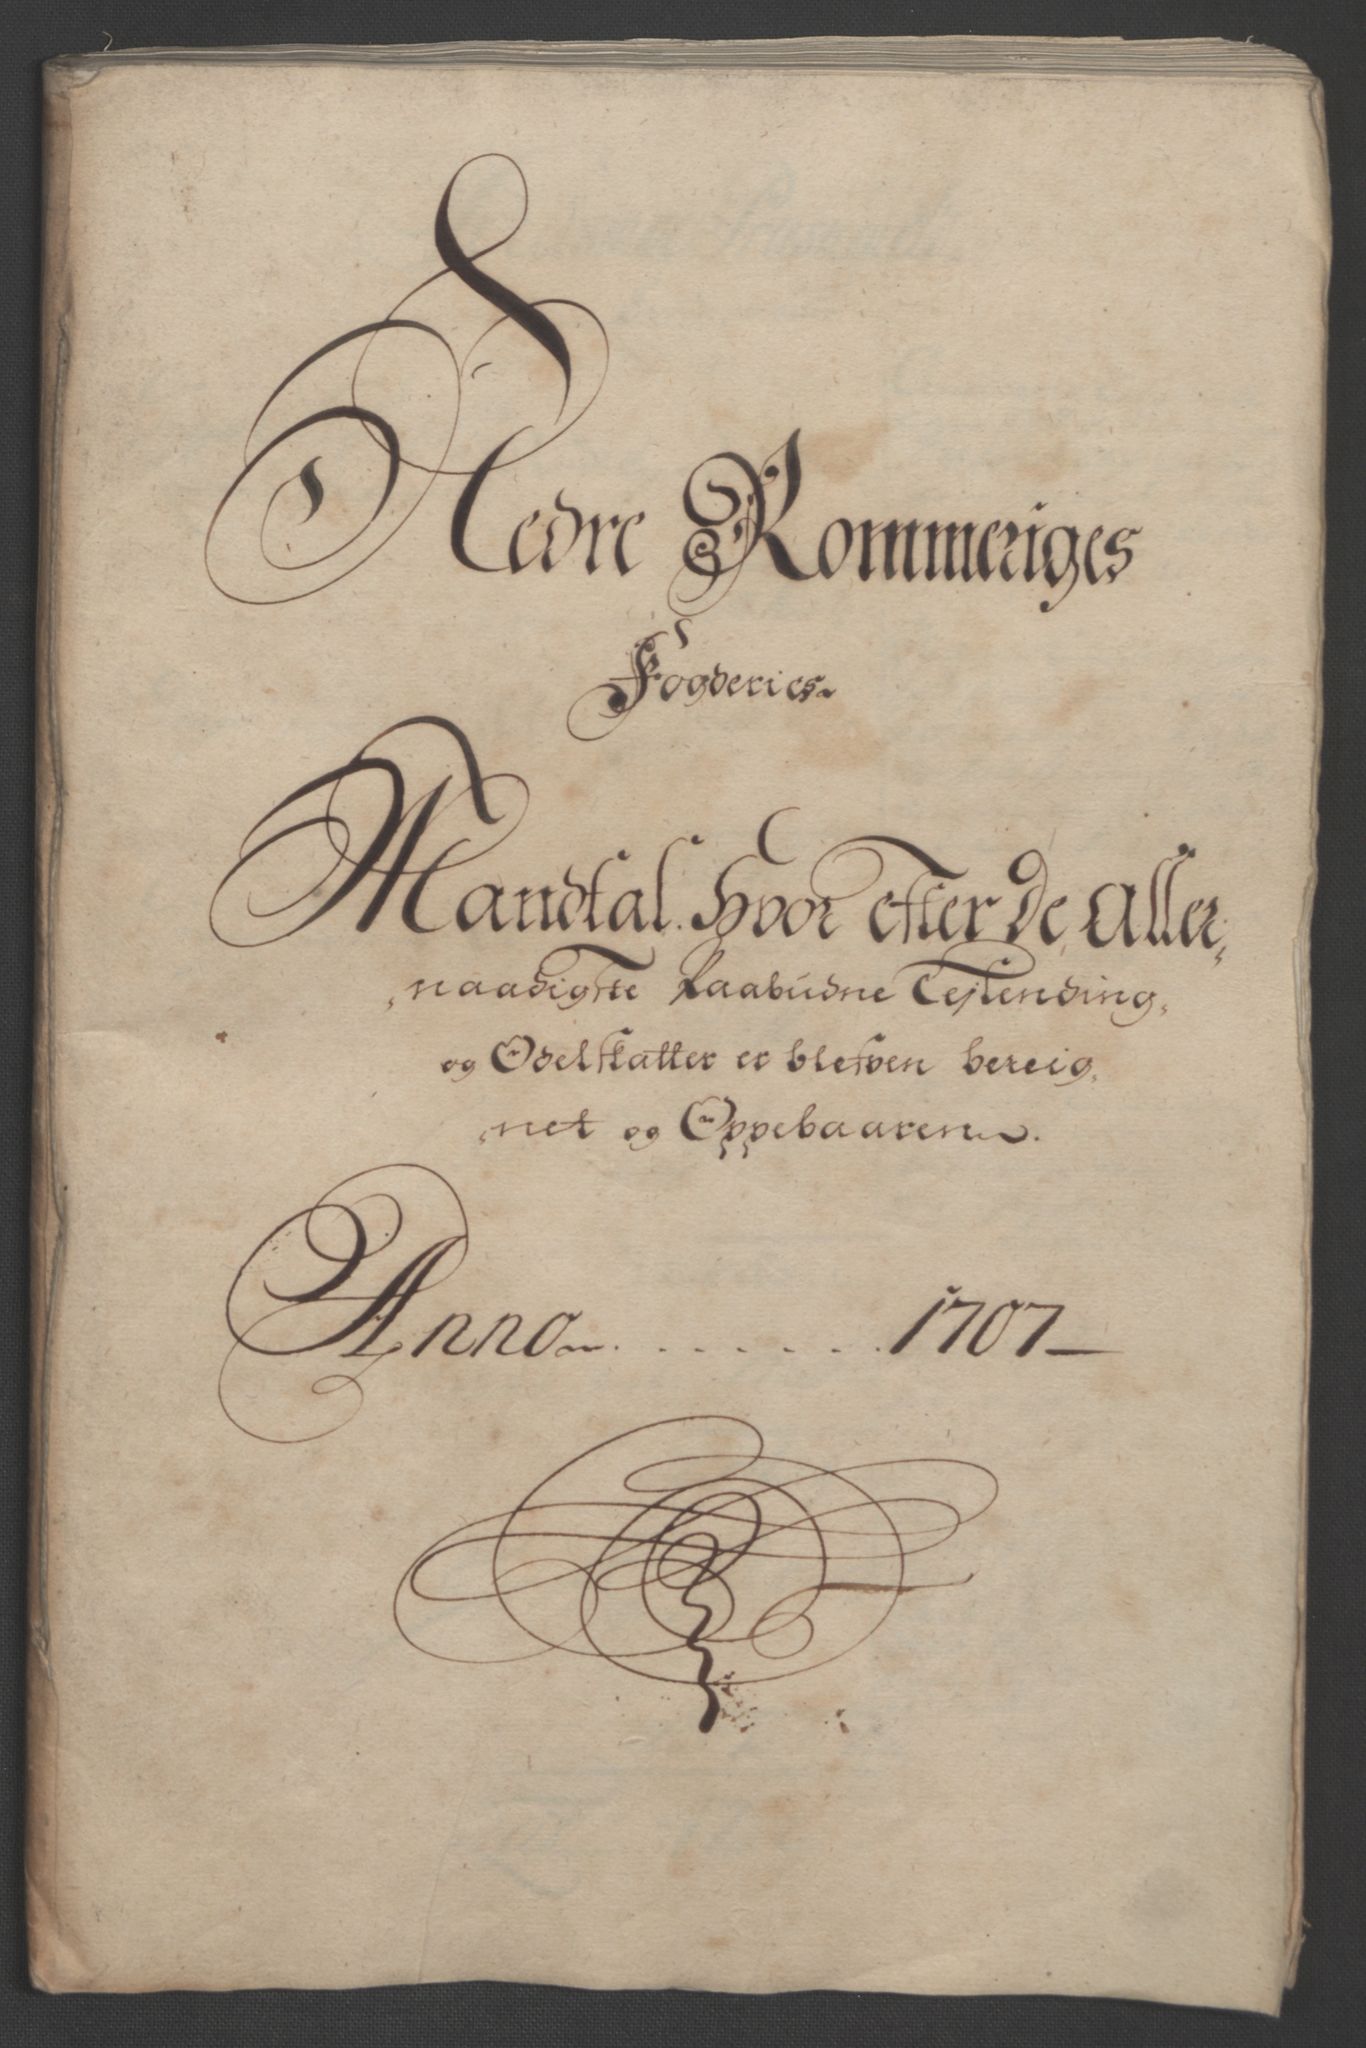 Nedre Rommeriges
Fogderies
Mandtal hvor efter de Aller,
,naadigste paabudne Tejlending,
og Odelskatter er blefven bereig,
,net og Oppebaaren.
Anno . . . . . . . 1707